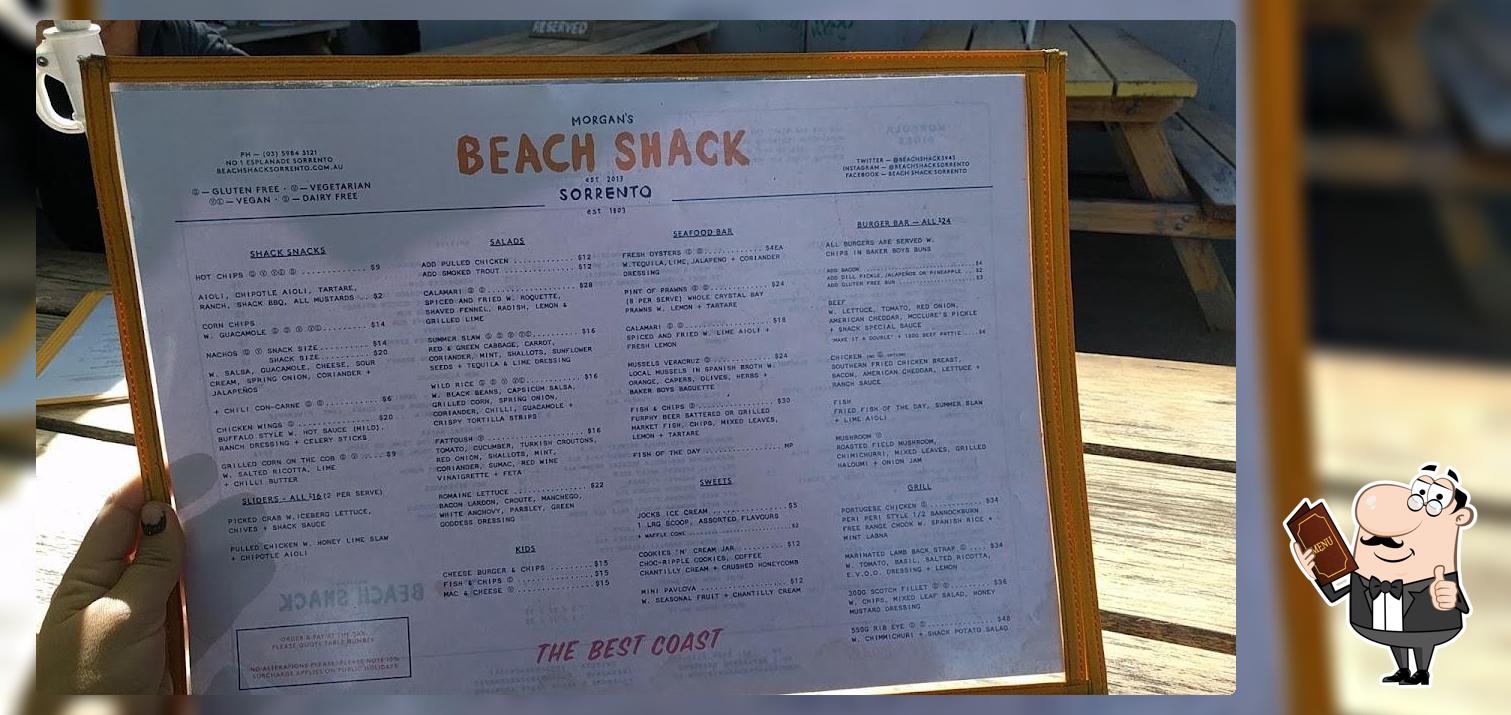 RESERVED
MORGAN'S
BEACH SHACK
est. 2013
SORRENTO
est 1803
PH — (03) 5984 3121
NO 1 ESPLANADE SORRENTO
BEACHSHACKSORRENTO.COM.AU
— GLUTEN FREE · Ⓥ — VEGETARIAN
— VEGAN · Ⓓ — DAIRY FREE
TWITTER — @BEACHSHACK3943
INSTAGRAM — @BEACHSHACKSORRENTO
FACEBOOK — BEACH SHACK SORRENTO
SHACK SNACKS
HOT CHIPS $9
AIOLI, CHIPOTLE AIOLI, TARTARE,
RANCH, SHACK BBQ, ALL MUSTARDS $2
CORN CHIPS
W. GUACAMOLE $14
NACHOS SNACK SIZE $14
SHACK SIZE $20
W. SALSA, GUACAMOLE, CHEESE, SOUR
CREAM, SPRING ONION, CORIANDER +
JALAPEÑOS
+ CHILI CON-CARNE $6
CHICKEN WINGS $20
BUFFALO STYLE W. HOT SAUCE (MILD),
RANCH DRESSING + CELERY STICKS
GRILLED CORN ON THE COB $9
W. SALTED RICOTTA, LIME
+ CHILLI BUTTER
SLIDERS - ALL $16 (2 PER SERVE)
PICKED CRAB W. ICEBERG LETTUCE,
CHIVES + SHACK SAUCE
PULLED CHICKEN W. HONEY LIME SLAW
+ CHIPOTLE AIOLI
ORDER & PAY AT THE BAR,
PLEASE QUOTE TABLE NUMBER
NO ALTERATIONS PLEASE! PLEASE NOTE 10%
SURCHARGE APPLIES ON PUBLIC HOLIDAYS
SALADS
ADD PULLED CHICKEN $12
ADD SMOKED TROUT $12
CALAMARI $28
SPICED AND FRIED W. ROQUETTE,
SHAVED FENNEL, RADISH, LEMON &
GRILLED LIME
SUMMER SLAW $16
RED & GREEN CABBAGE, CARROT,
CORIANDER, MINT, SHALLOTS, SUNFLOWER
SEEDS + TEQUILA & LIME DRESSING
WILD RICE $16
W. BLACK BEANS, CAPSICUM SALSA,
GRILLED CORN, SPRING ONION,
CORIANDER, CHILLI, GUACAMOLE +
CRISPY TORTILLA STRIPS
FATTOUSH Ⓥ $16
TOMATO, CUCUMBER, TURKISH CROUTONS,
RED ONION, SHALLOTS, MINT,
CORIANDER, SUMAC, RED WINE
VINAIGRETTE + FETA
ROMAINE LETTUCE $22
BACON LARDON, CROUTE, MANCHEGO,
WHITE ANCHOVY, PARSLEY, GREEN
GODDESS DRESSING
KIDS
CHEESE BURGER & CHIPS $15
FISH & CHIPS $15
MAC & CHEESE Ⓥ $15
SEAFOOD BAR
FRESH OYSTERS $4EA
W.TEQUILA, LIME, JALAPENO + CORIANDER
DRESSING
PINT OF PRAWNS $24
(8 PER SERVE) WHOLE CRYSTAL BAY
PRAWNS W. LEMON + TARTARE
CALAMARI $18
SPICED AND FRIED W. LIME AIOLI +
FRESH LEMON
MUSSELS VERACRUZ $24
LOCAL MUSSELS IN SPANISH BROTH W.
ORANGE, CAPERS, OLIVES, HERBS +
BAKER BOYS BAGUETTE
FISH & CHIPS $30
FURPHY BEER BATTERED OR GRILLED
MARKET FISH, CHIPS, MIXED LEAVES,
LEMON + TARTARE
FISH OF THE DAY MP
SWEETS
JOCKS ICE CREAM $5
1 LRG SCOOP, ASSORTED FLAVOURS
+ WAFFLE CONE $2
COOKIES 'N' CREAM JAR $12
CHOC-RIPPLE COOKIES, COFFEE
CHANTILLY CREAM + CRUSHED HONEYCOMB
MINI PAVLOVA $12
W. SEASONAL FRUIT + CHANTILLY CREAM
BURGER BAR — ALL $24
ALL BURGERS ARE SERVED W.
CHIPS IN BAKER BOYS BUNS
ADD BACON $4
ADD DILL PICKLE, JALAPEÑOS OR PINEAPPLE $2
ADD GLUTEN FREE BUN $3
BEEF
W. LETTUCE, TOMATO, RED ONION,
AMERICAN CHEDDAR, MCCLURE'S PICKLE
+ SHACK SPECIAL SAUCE
'MAKE IT A DOUBLE' + 180G BEEF PATTIE $6
CHICKEN
SOUTHERN FRIED CHICKEN BREAST,
BACON, AMERICAN CHEDDAR, LETTUCE +
RANCH SAUCE
FISH
FRIED FISH OF THE DAY, SUMMER SLAW
+ LIME AIOLI
MUSHROOM Ⓥ
ROASTED FIELD MUSHROOM,
CHIMICHURRI, MIXED LEAVES, GRILLED
HALOUMI + ONION JAM
GRILL
PORTUGESE CHICKEN $34
PERI PERI STYLE 1/2 BANNOCKBURN
FREE RANGE CHOOK W. SPANISH RICE +
MINT LABNA
MARINATED LAMB BACK STRAP $34
W. TOMATO, BASIL, SALTED RICOTTA,
E.V.O.O. DRESSING + LEMON
300G SCOTCH FILLET $36
W. CHIPS, MIXED LEAF SALAD, HONEY
MUSTARD DRESSING
550G RIB EYE $48
W. CHIMMICHURI + SHACK POTATO SALAD
THE BEST COAST
MENU